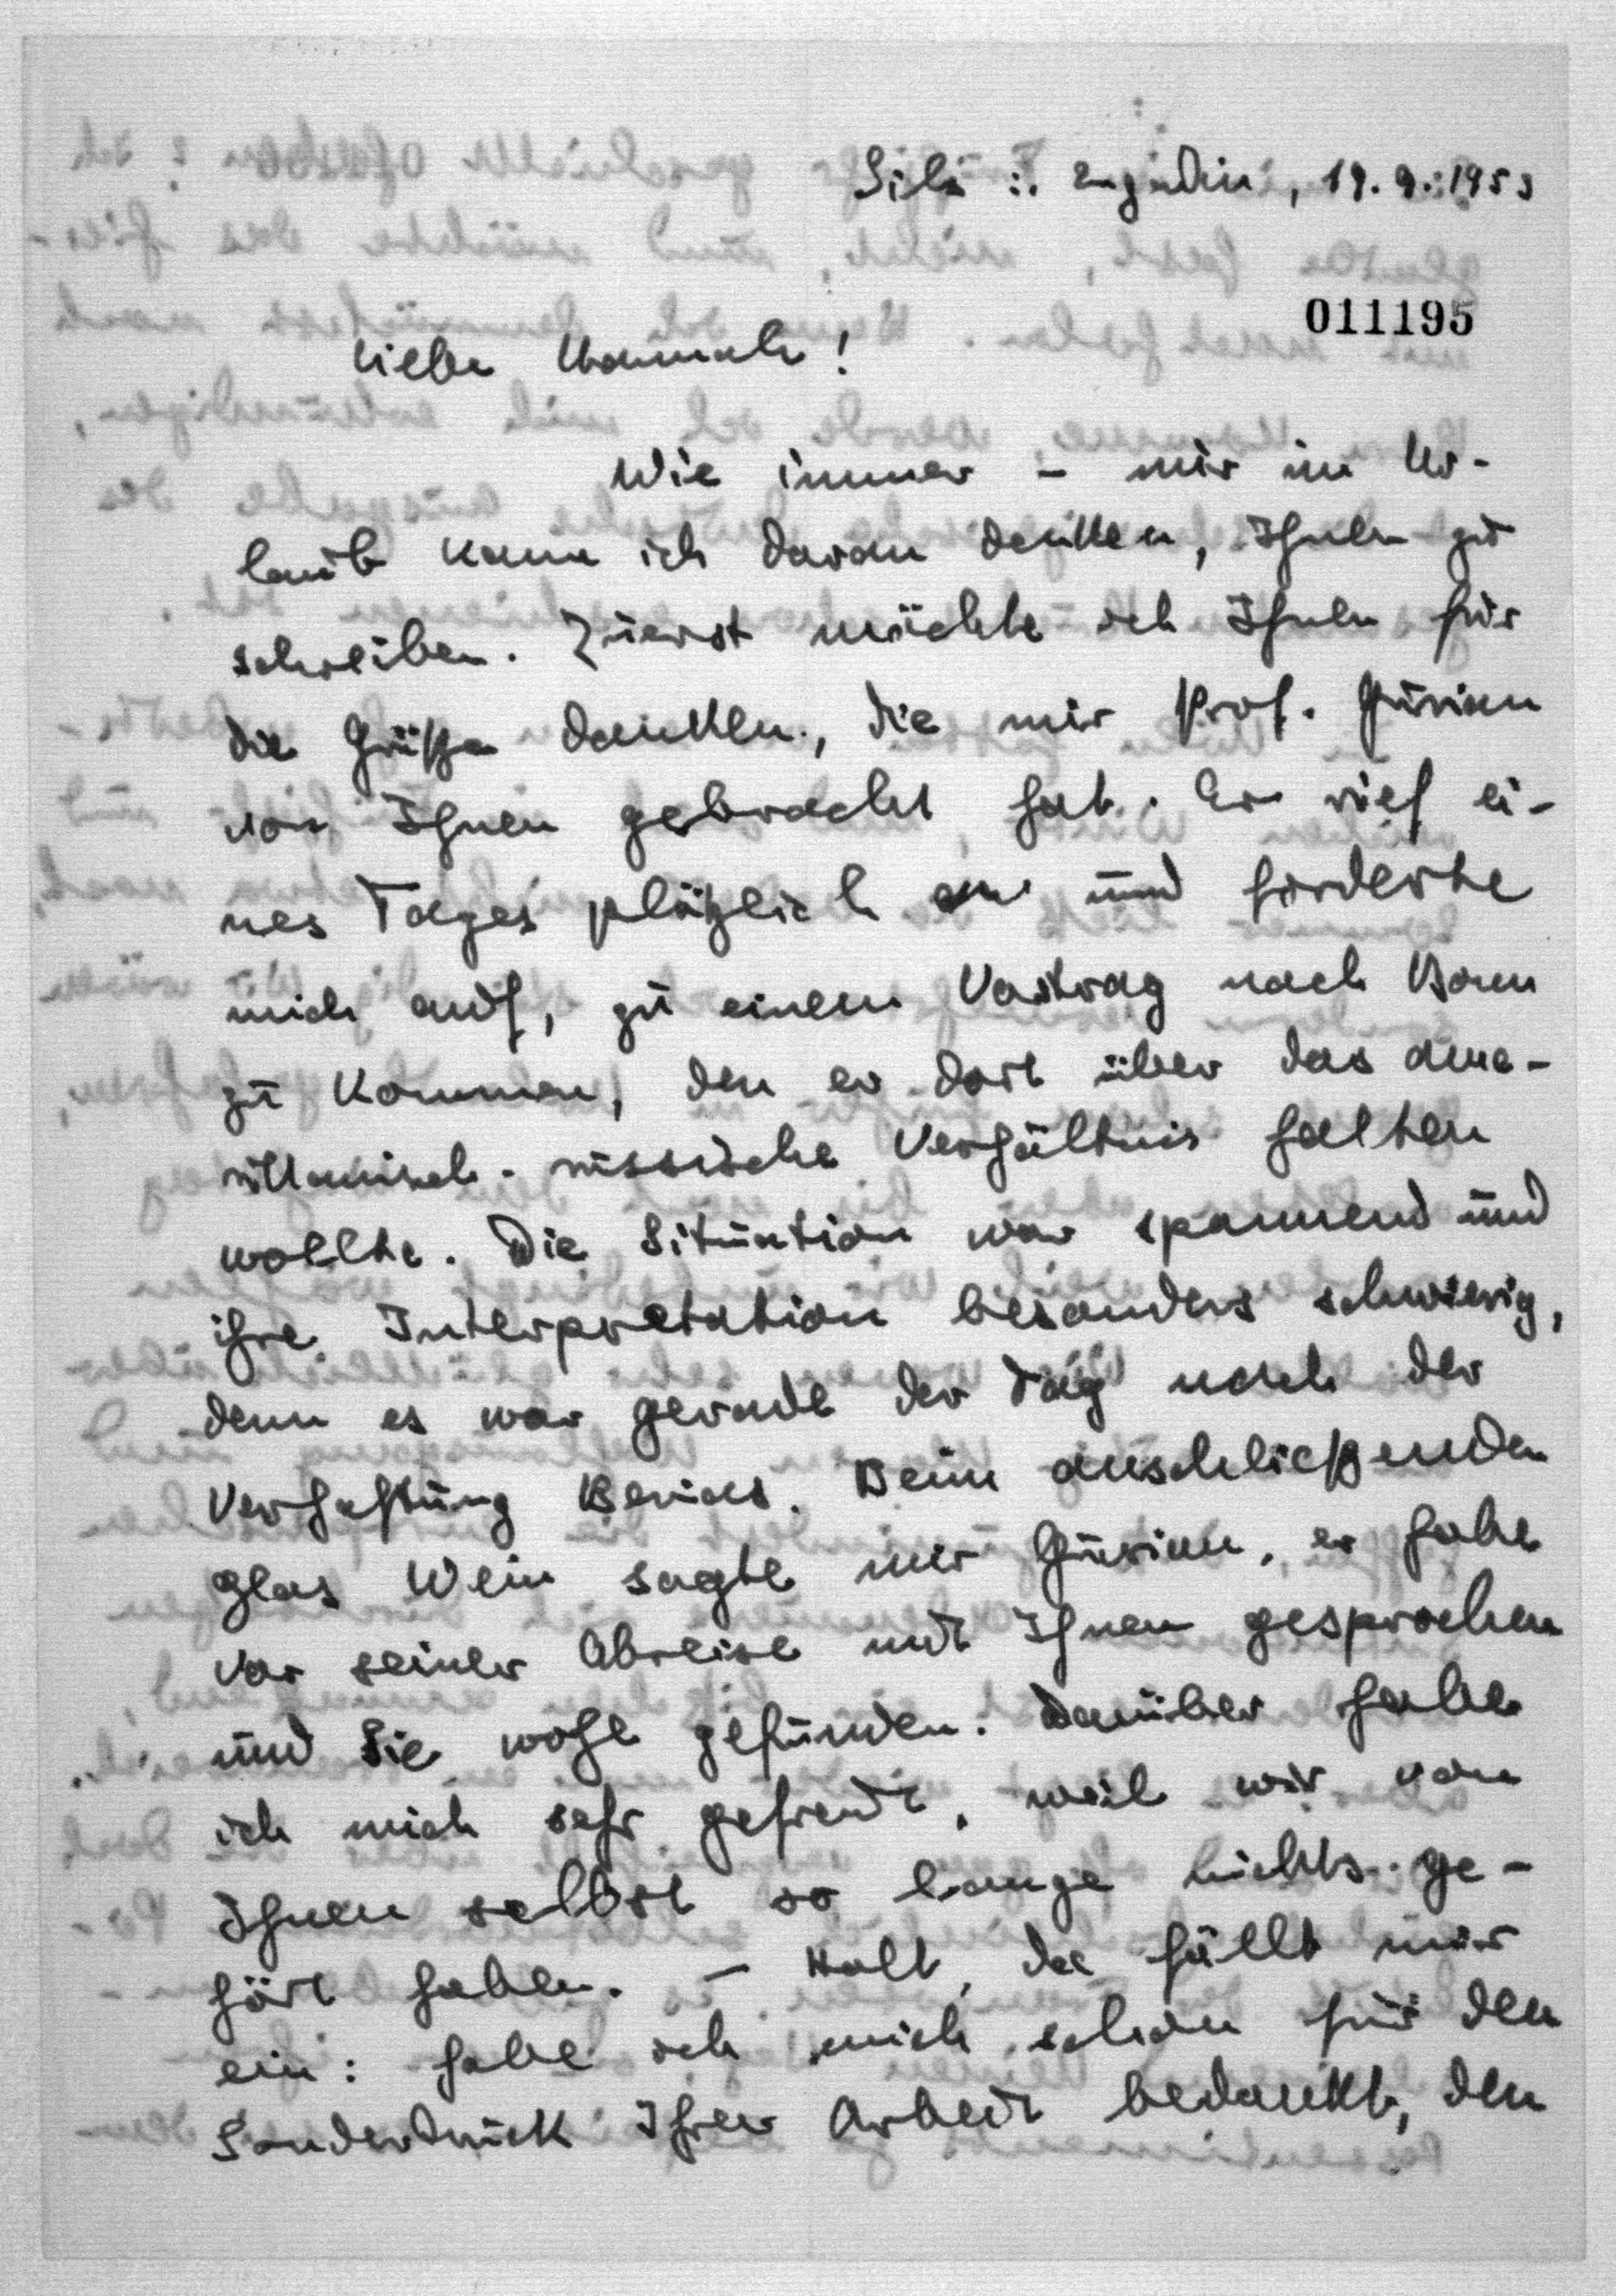 Sils i. Engadin, 19.9.1953
011195
Liebe Hannah!
Wie immer – nur im Ur-
laub kann ich daran denken, Ihnen zu
schreiben. Zuerst möchte ich Ihnen für
die Grüße danken, die mir Prof. Gurian
von Ihnen gebracht hat. Er rief ei-
nes Tages plötzlich an und forderte
mich auf, zu einem Vortrag nach Bonn
zu kommen, den er dort über das ame-
rikanisch-russische Verhältnis halten
wollte. Die Situation war spannend und
ihre Interpretation besonders schwierig,
denn es war gerade der Tag nach der
Verhaftung Berias. Beim anschließenden
Glas Wein sagte mir Gurian, er habe
vor seiner Abreise mit Ihnen gesprochen
und Sie wohl gefunden. Darüber habe
ich mich sehr gefreut, weil wir von
Ihnen selbst so lange nichts ge-
hört haben. – Halt, da fällt mir
ein: habe ich mich schon für den
Sonderdruck Ihrer Arbeit bedankt, den